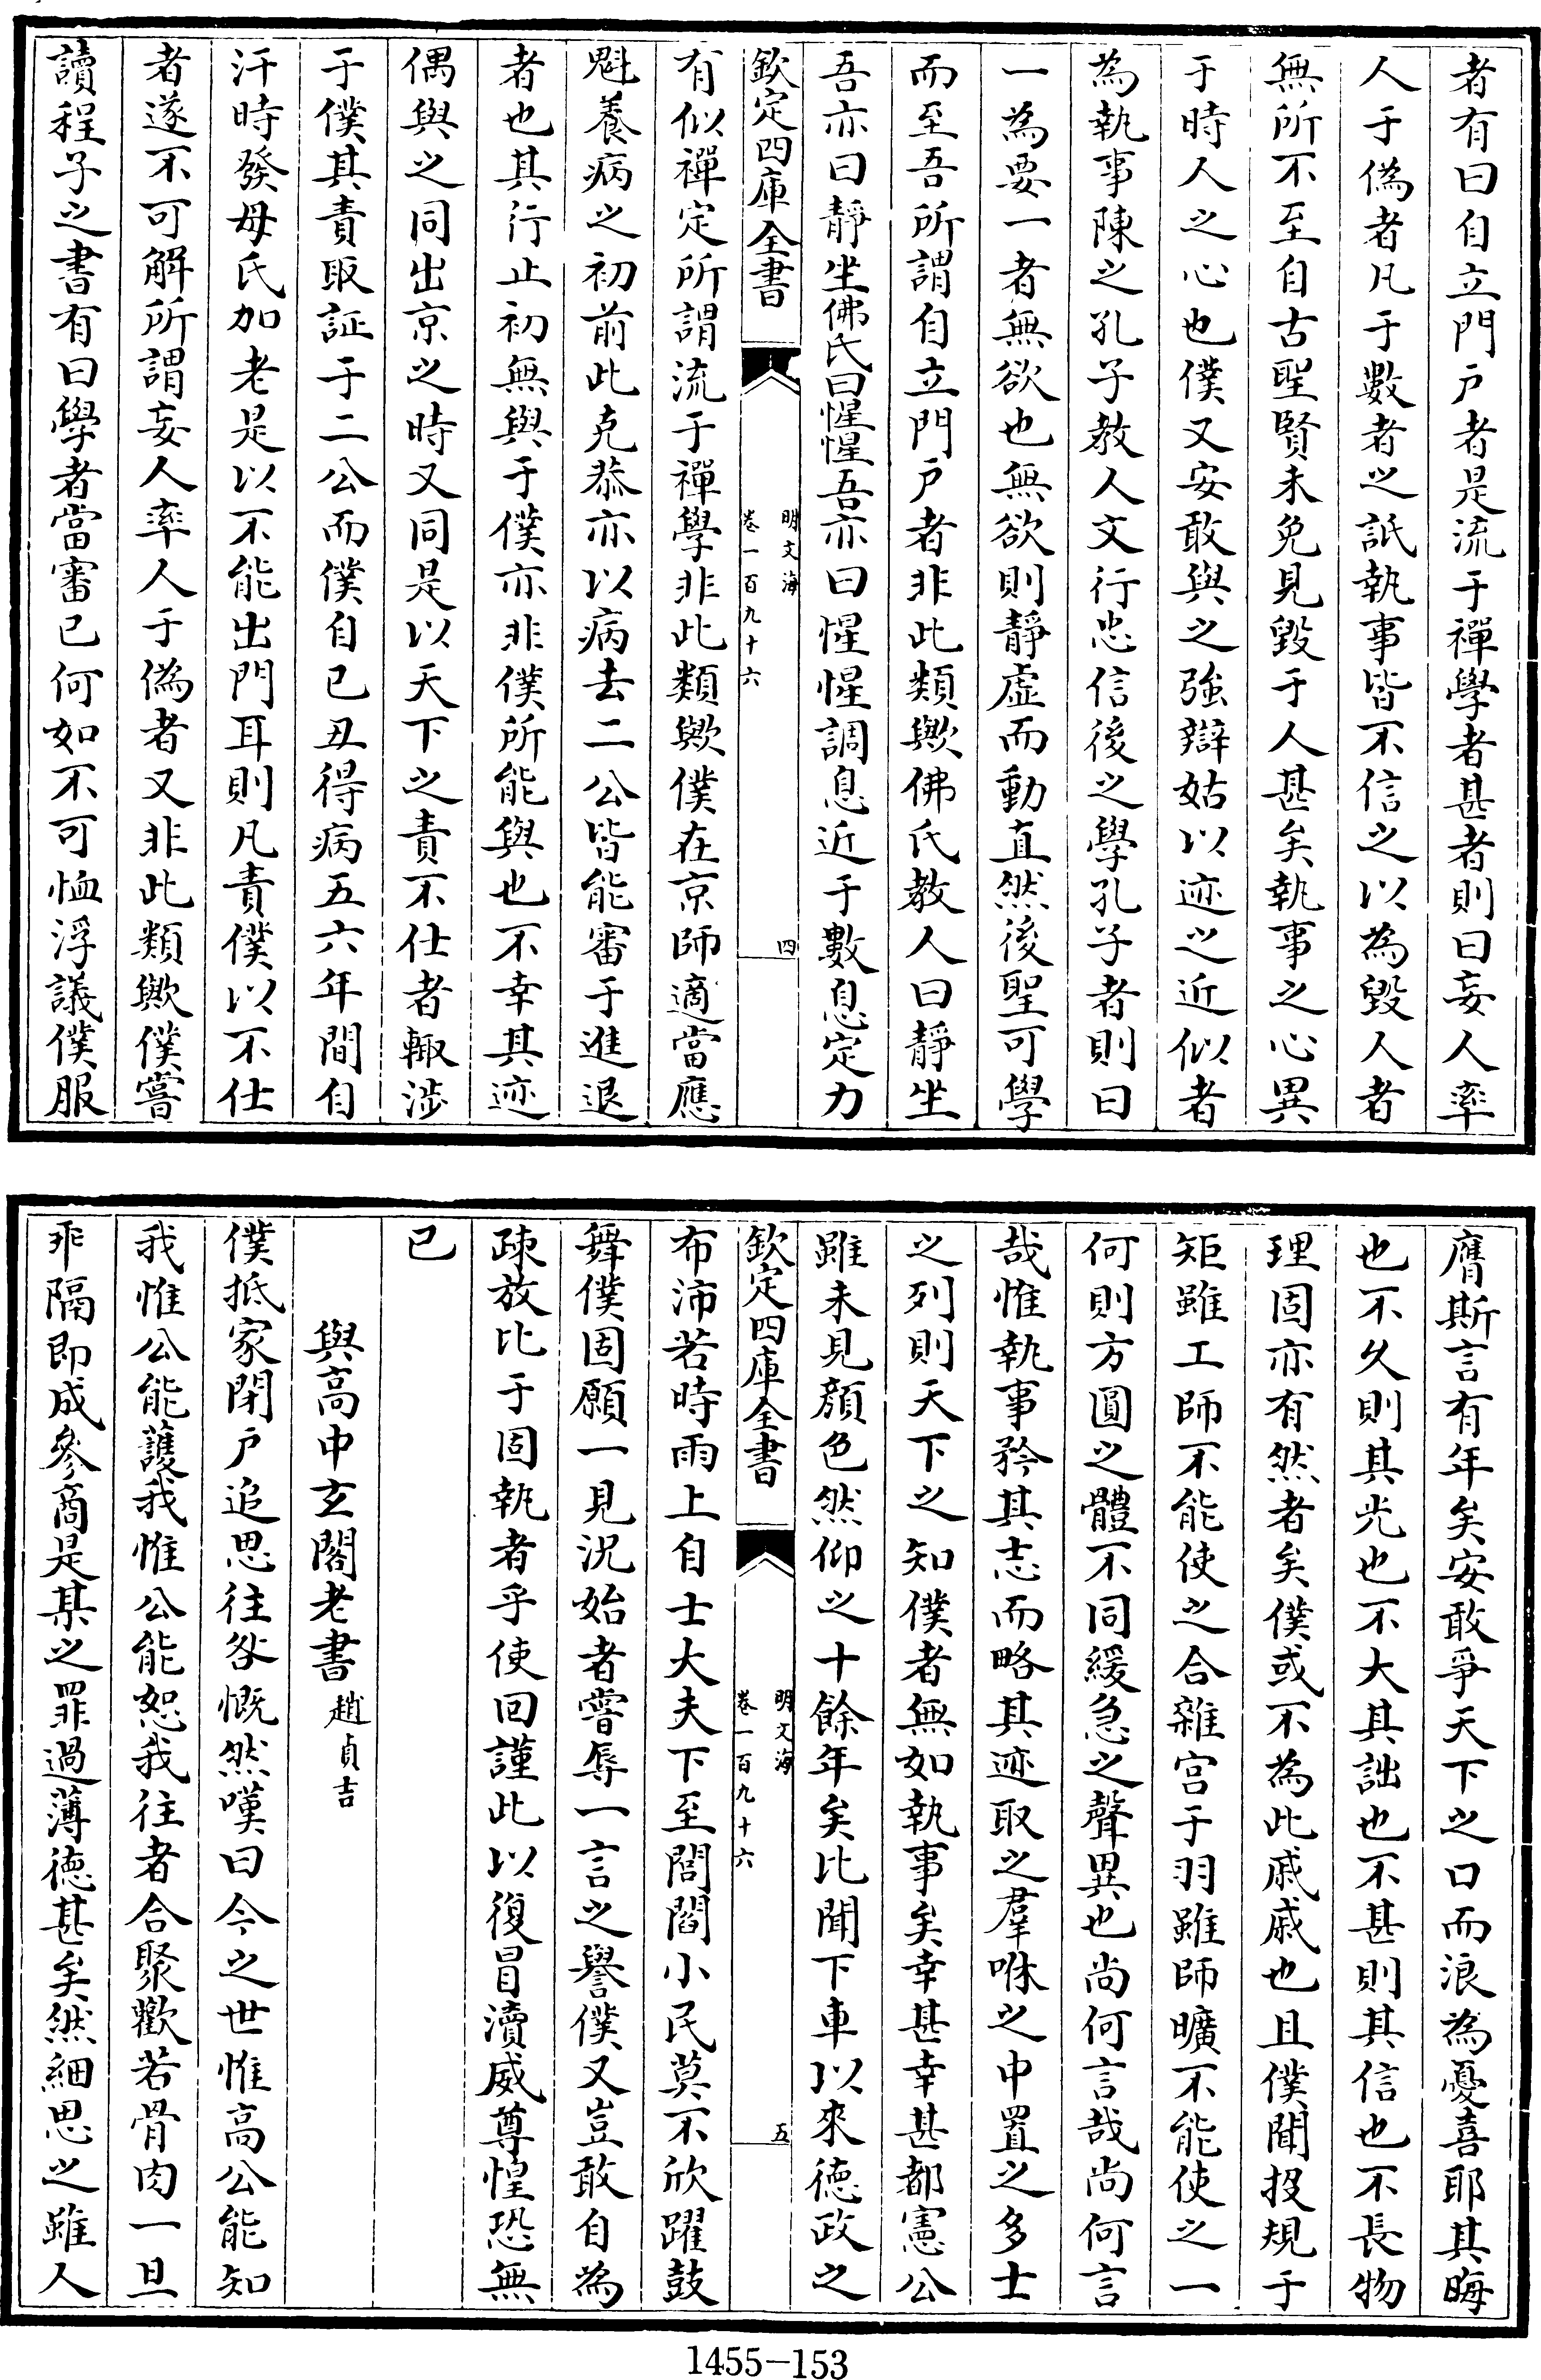 者有曰自立門戶者是流于禪學者甚者則曰妄人率
人于偽者凡于數者之詆執事皆不信之以為毀人者
無所不至自古聖賢未免見毀于人甚矣執事之心異
于時人之心也僕又安敢與之強辯姑以迹之近似者
為執事陳之孔子教人文行忠信後之學孔子者則曰
一為要一者無欲也無欲則靜虛而動直然後聖可學
而至吾所謂自立門戶者非此類歟佛氏教人曰靜坐
吾亦曰靜坐佛氏曰惺惺吾亦曰惺惺調息近于數息定力
欽定四庫全書
明文海
卷一百九十六
四
有似禪定所謂流于禪學非此類歟僕在京師適當應
魁養病之初前此克恭亦以病去二公皆能審于進退
者也其行止初無與于僕亦非僕所能與也不幸其迹
偶與之同出京之時又同是以天下之責不仕者輙涉
于僕其責取証于二公而僕自已丑得病五六年間自
汗時發母氏加老是以不能出門耳則凡責僕以不仕
者遂不可解所謂妄人率人于偽者又非此類歟僕嘗
讀程子之書有曰學者當審已何如不可恤浮議僕服
膺斯言有年矣安敢爭天下之口而浪為憂喜耶其晦
也不久則其光也不大其詘也不甚則其信也不長物
理固亦有然者矣僕或不為此戚戚也且僕聞投規于
矩雖工師不能使之合雜宮于羽雖師曠不能使之一
何則方圓之體不同緩急之聲異也尚何言哉尚何言
哉惟執事矜其志而略其迹取之羣咻之中置之多士
之列則天下之知僕者無如執事矣幸甚幸甚都憲公
雖未見顏色然仰之十餘年矣比聞下車以來德政之
欽定四庫全書
明文海
卷一百九十六
五
布沛若時雨上自士大夫下至閭閻小民莫不欣躍鼓
舞僕固願一見況始者嘗辱一言之譽僕又豈敢自為
疎放比于固執者乎使回謹此以復冒瀆威尊惶恐無
已
與高中玄閣老書 趙貞吉
僕抵家閉戶追思往咎慨然嘆曰今之世惟高公能知
我惟公能護我惟公能恕我往者合聚歡若骨肉一旦
乖隔即成參商是某之罪過薄德甚矣然細思之雖人
1455-153